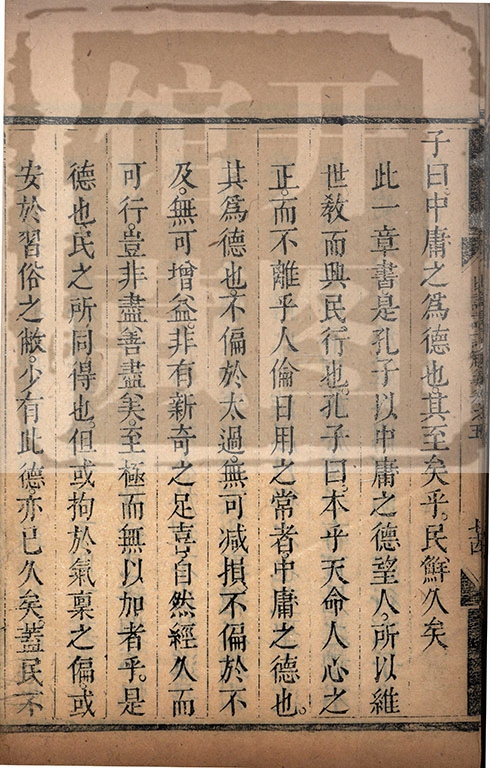 子曰。中庸之爲德也。其至矣乎。民鮮久矣
此一章書是孔子以中庸之德望人。所以維
世教而興民行也。孔子曰。本乎天命人心之
正。而不離乎人倫日用之常者。中庸之德也。
其爲德也。不偏於太過。無可減損。不偏於不
及。無可增益。非有新奇之足喜。自然經久而
可行。豈非盡善盡美。至極而無以加者乎。是
德也。民之所同得也。但或拘於氣稟之偏。或
安於習俗之敝。少有此德。亦已久矣。蓋民不